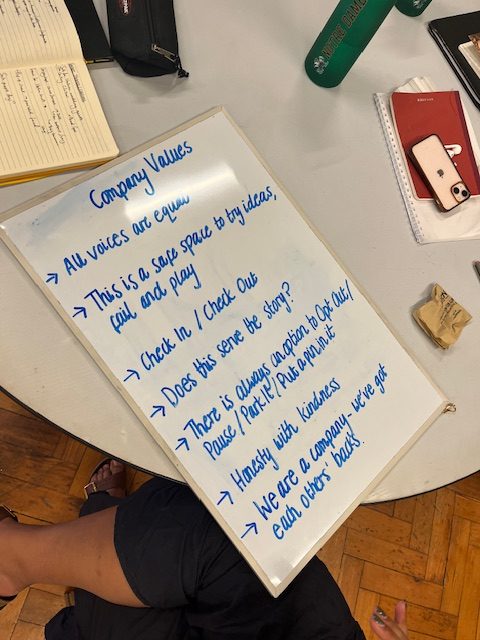 Company Values
→ All voices are equal
→ This is a safe space to try ideas,
fail and play
→ Check In / Check Out
→ Does this serve the story?
→ There is always an option to Opt Out/
Pause / Park It / Put a pin in it
→ Honesty with kindness
→ We are a company - we've got
each others' backs!
NOTRE DAME